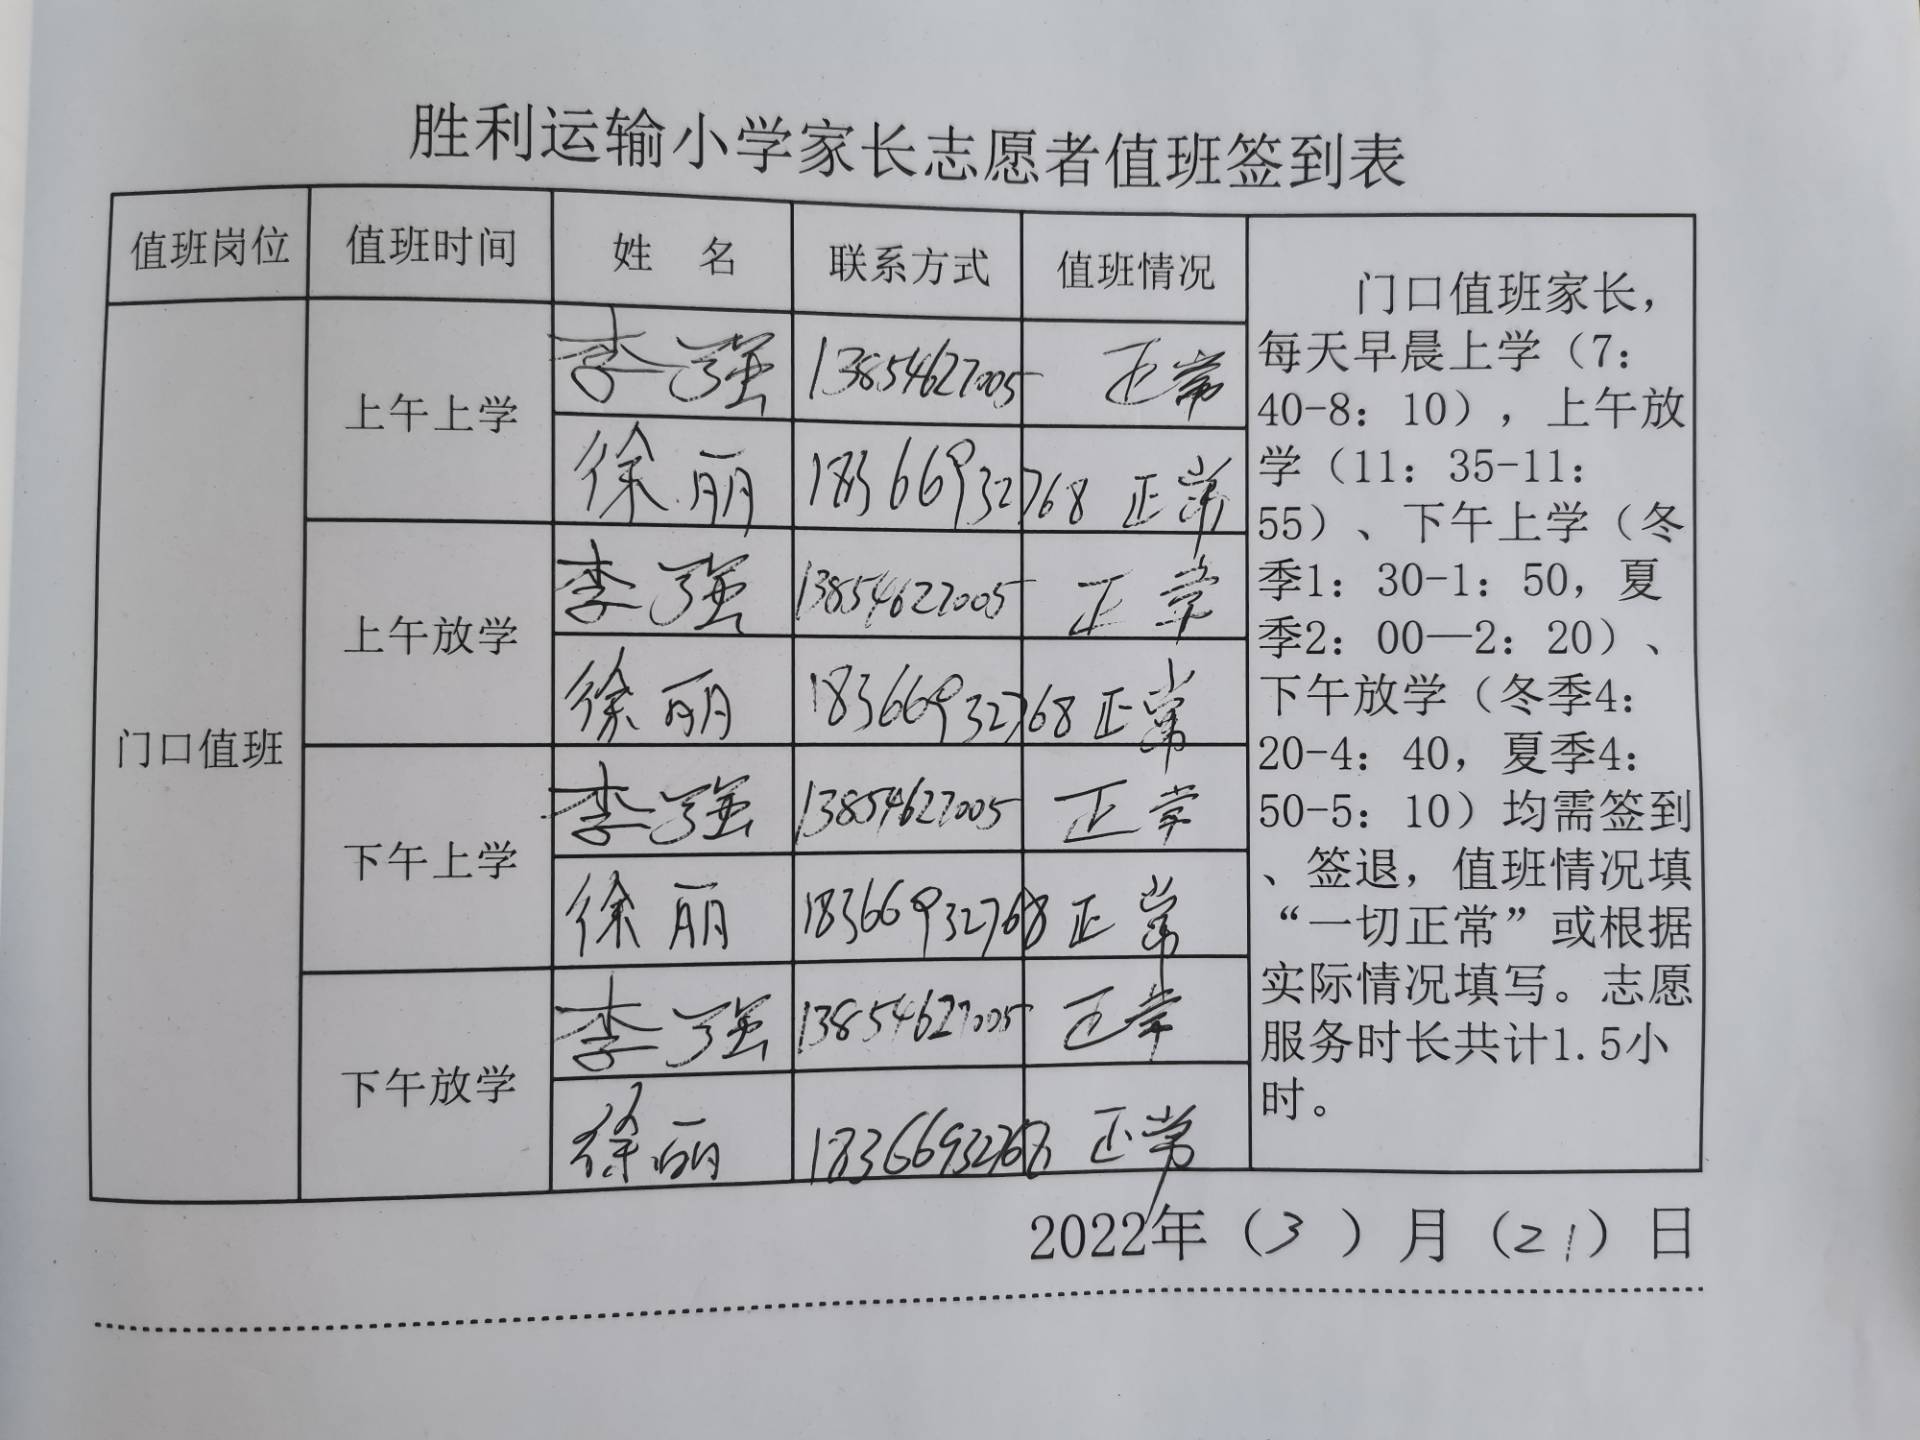 胜利运输小学家长志愿者值班签到表
值班岗位 值班时间 姓 名 联系方式 值班情况
门口值班
上午上学
李强 13854627005 正常
徐丽 18366932768 正常
上午放学
李强 13854627005 正常
徐丽 18366932768 正常
下午上学
李强 13854627005 正常
徐丽 18366932768 正常
下午放学
李强 13854627005 正常
徐丽 18366932768 正常
门口值班家长，
每天早晨上学（7：
40-8：10），上午放
学（11：35-11：
55）、下午上学（冬
季1：30-1：50，夏
季2：00—2：20）、
下午放学（冬季4：
20-4：40，夏季4：
50-5：10）均需签到
、签退，值班情况填
“一切正常”或根据
实际情况填写。志愿
服务时长共计1.5小
时。
2022年（3）月（21）日